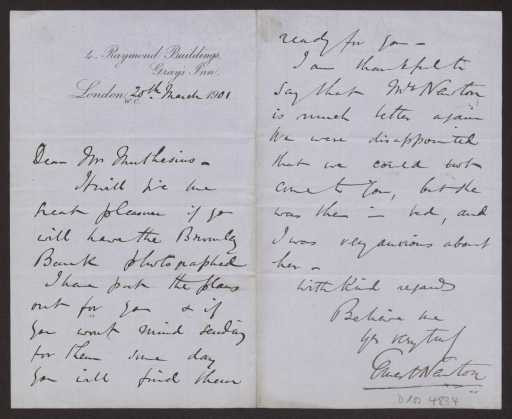 4, Raymond Buildings,
Gray's Inn,
London, 20th March 1901
W.C.
Dear Mr Muthesius -
It will give me
great pleasure if you
will have the Bromley
Bank photographed
I have put the plans
out for you & if
you won't mind sending
for them some day
you will find them
ready for you -
I am thankful to
say that Mrs Newton
is much better again
We were disappointed
that we could not
come to you, but she
was then in bed, and
I was very anxious about
her -
with kind regards
Believe me
yrs very truly
Ernest Newton
4834